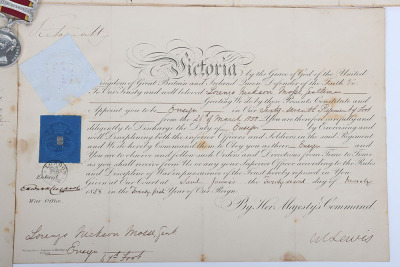 Victoria by the Grace of God of the United
Kingdom of Great Britain and Ireland Queen Defender of the Faith &c
To Our Trusty and well beloved Lorenzo Nickson Mosse Gentleman
Greeting We do by these Presents Constitute and
Appoint you to be Ensign in Our Sixty Seventh Regiment of Foot
from the March 1858 You are therefore carefully and
diligently to Discharge the Duty of Ensign by Exercising and
well Disciplining both the inferior Officers and Soldiers in the said Regiment
and We do hereby Command them to Obey you as their Ensign and
You are to observe and follow such Orders and Directions from Time to Time
as you shall receive from Us or any your Superior Officer according to the Rules
and Discipline of War in pursuance of the Trust hereby reposed in You
Given at Our Court at Saint James's the day of March
1858 in the Twenty first Year of Our Reign
Entered
War Office
By Her Majesty's Command
Lorenzo Nickson Mosse Gent
Ensign
67th Foot